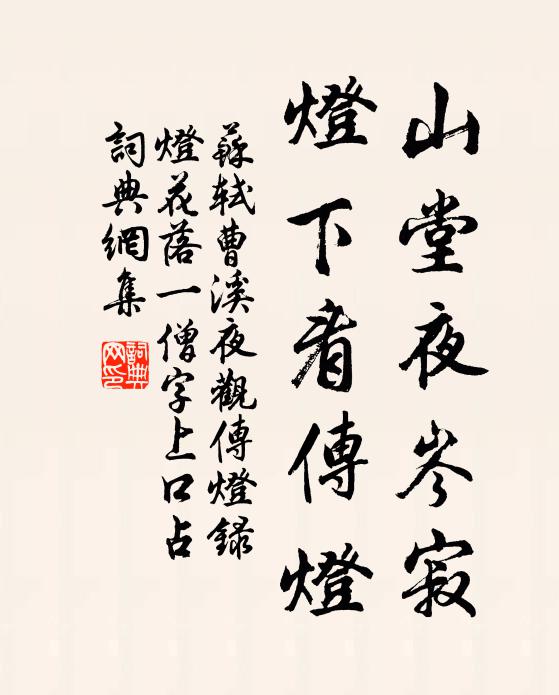 山堂夜岑寂
燈下看傳燈
蘇軾曹溪夜觀傳燈錄
燈花落一僧字上口占
詞典網集
詞典網印